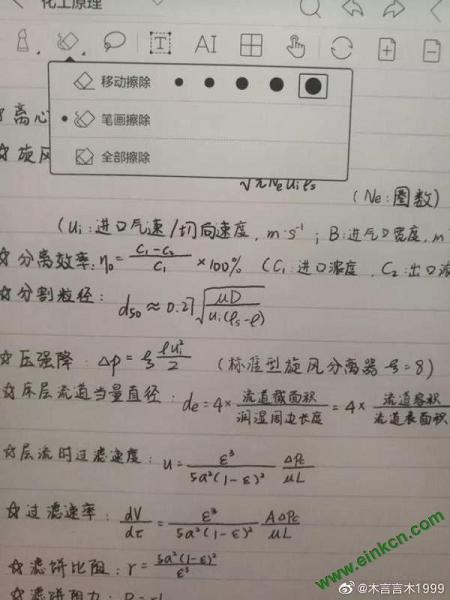 化工原理
AI
移动擦除
笔画擦除
全部擦除
离心
☆旋风
√πNeuiρs
(Ne:圈数)
(ui:进口气速/切向速度, m·s⁻¹; B:进气口宽度, m
☆分离效率: η₀=(C₁-C₂)/C₁ ×100% (C₁:进口浓度, C₂:出口浓
☆分割粒径: d₅₀≈0.27√(μD/(ui(ρs-ρ)))
☆压强降: Δp=ξ ρui²/2 (标准型旋风分离器 ξ=8)
☆床层流道当量直径: de=4×流道截面积/润湿周边长度=4×流道容积/流道表面积
☆层流时过滤速度: u=ε³/(5a²(1-ε)²) ΔPc/μL
☆过滤速率: dV/dτ=ε³/(5a²(1-ε)²) AΔPc/μL
☆滤饼比阻: r=5a²(1-ε)²/ε³
☆滤饼阻力: R=rL
www.einkcn.com
@木言言木1999